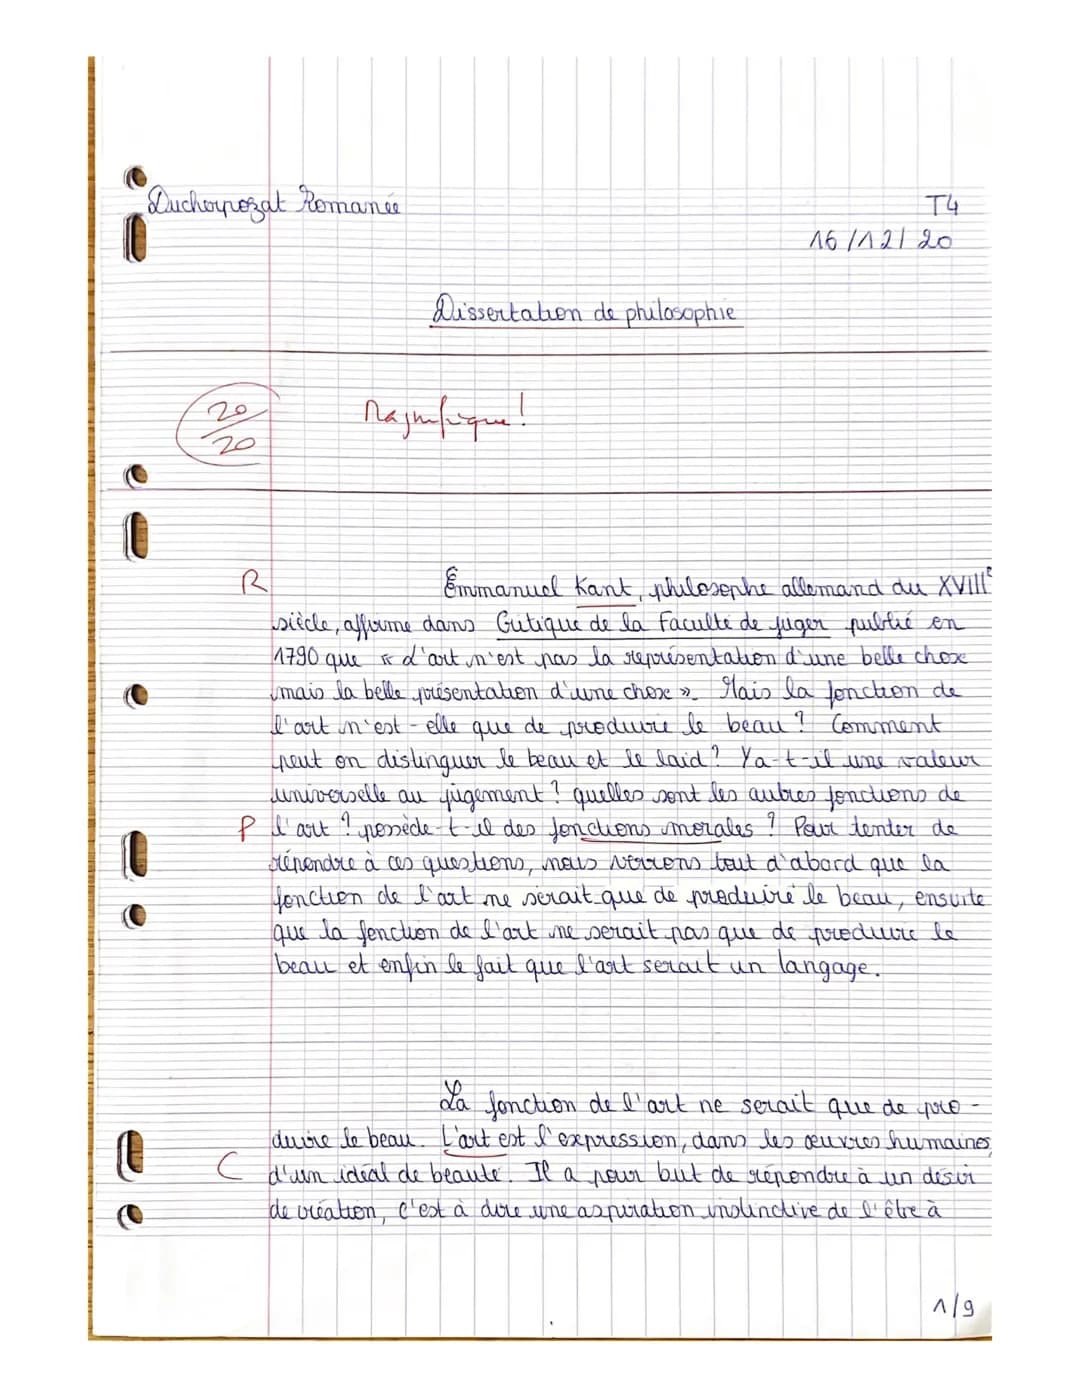 Duchorpozat Romanée
T4
16/12/20
Dissertation de philosophie
20/20
Magnifique!
R
Emmanuel Kant, philosophe allemand du XVIIIe
siècle, affirme dans Critique de la Faculté de juger publié en
1790 que « l'art n'est pas la représentation d'une belle chose
mais la belle présentation d'une chose ». Mais la fonction de
l'art n'est-elle que de produire le beau ? Comment
peut on distinguer le beau et le laid ? Ya-t-il une valeur
universelle au jugement ? quelles sont les autres fonctions de
P l'art ? possède-t-il des fonctions morales ? Pour tenter de
répondre à ces questions, nous verrons tout d'abord que la
fonction de l'art ne serait que de produire le beau, ensuite
que la fonction de l'art ne serait pas que de produire le
beau et enfin le fait que l'art serait un langage.
La fonction de l'art ne serait que de pro-
duire le beau. L'art est l'expression, dans les œuvres humaines,
C d'un idéal de beauté. Il a pour but de répondre à un désir
de création, c'est à dire une aspiration instinctive de l'être à
1/9